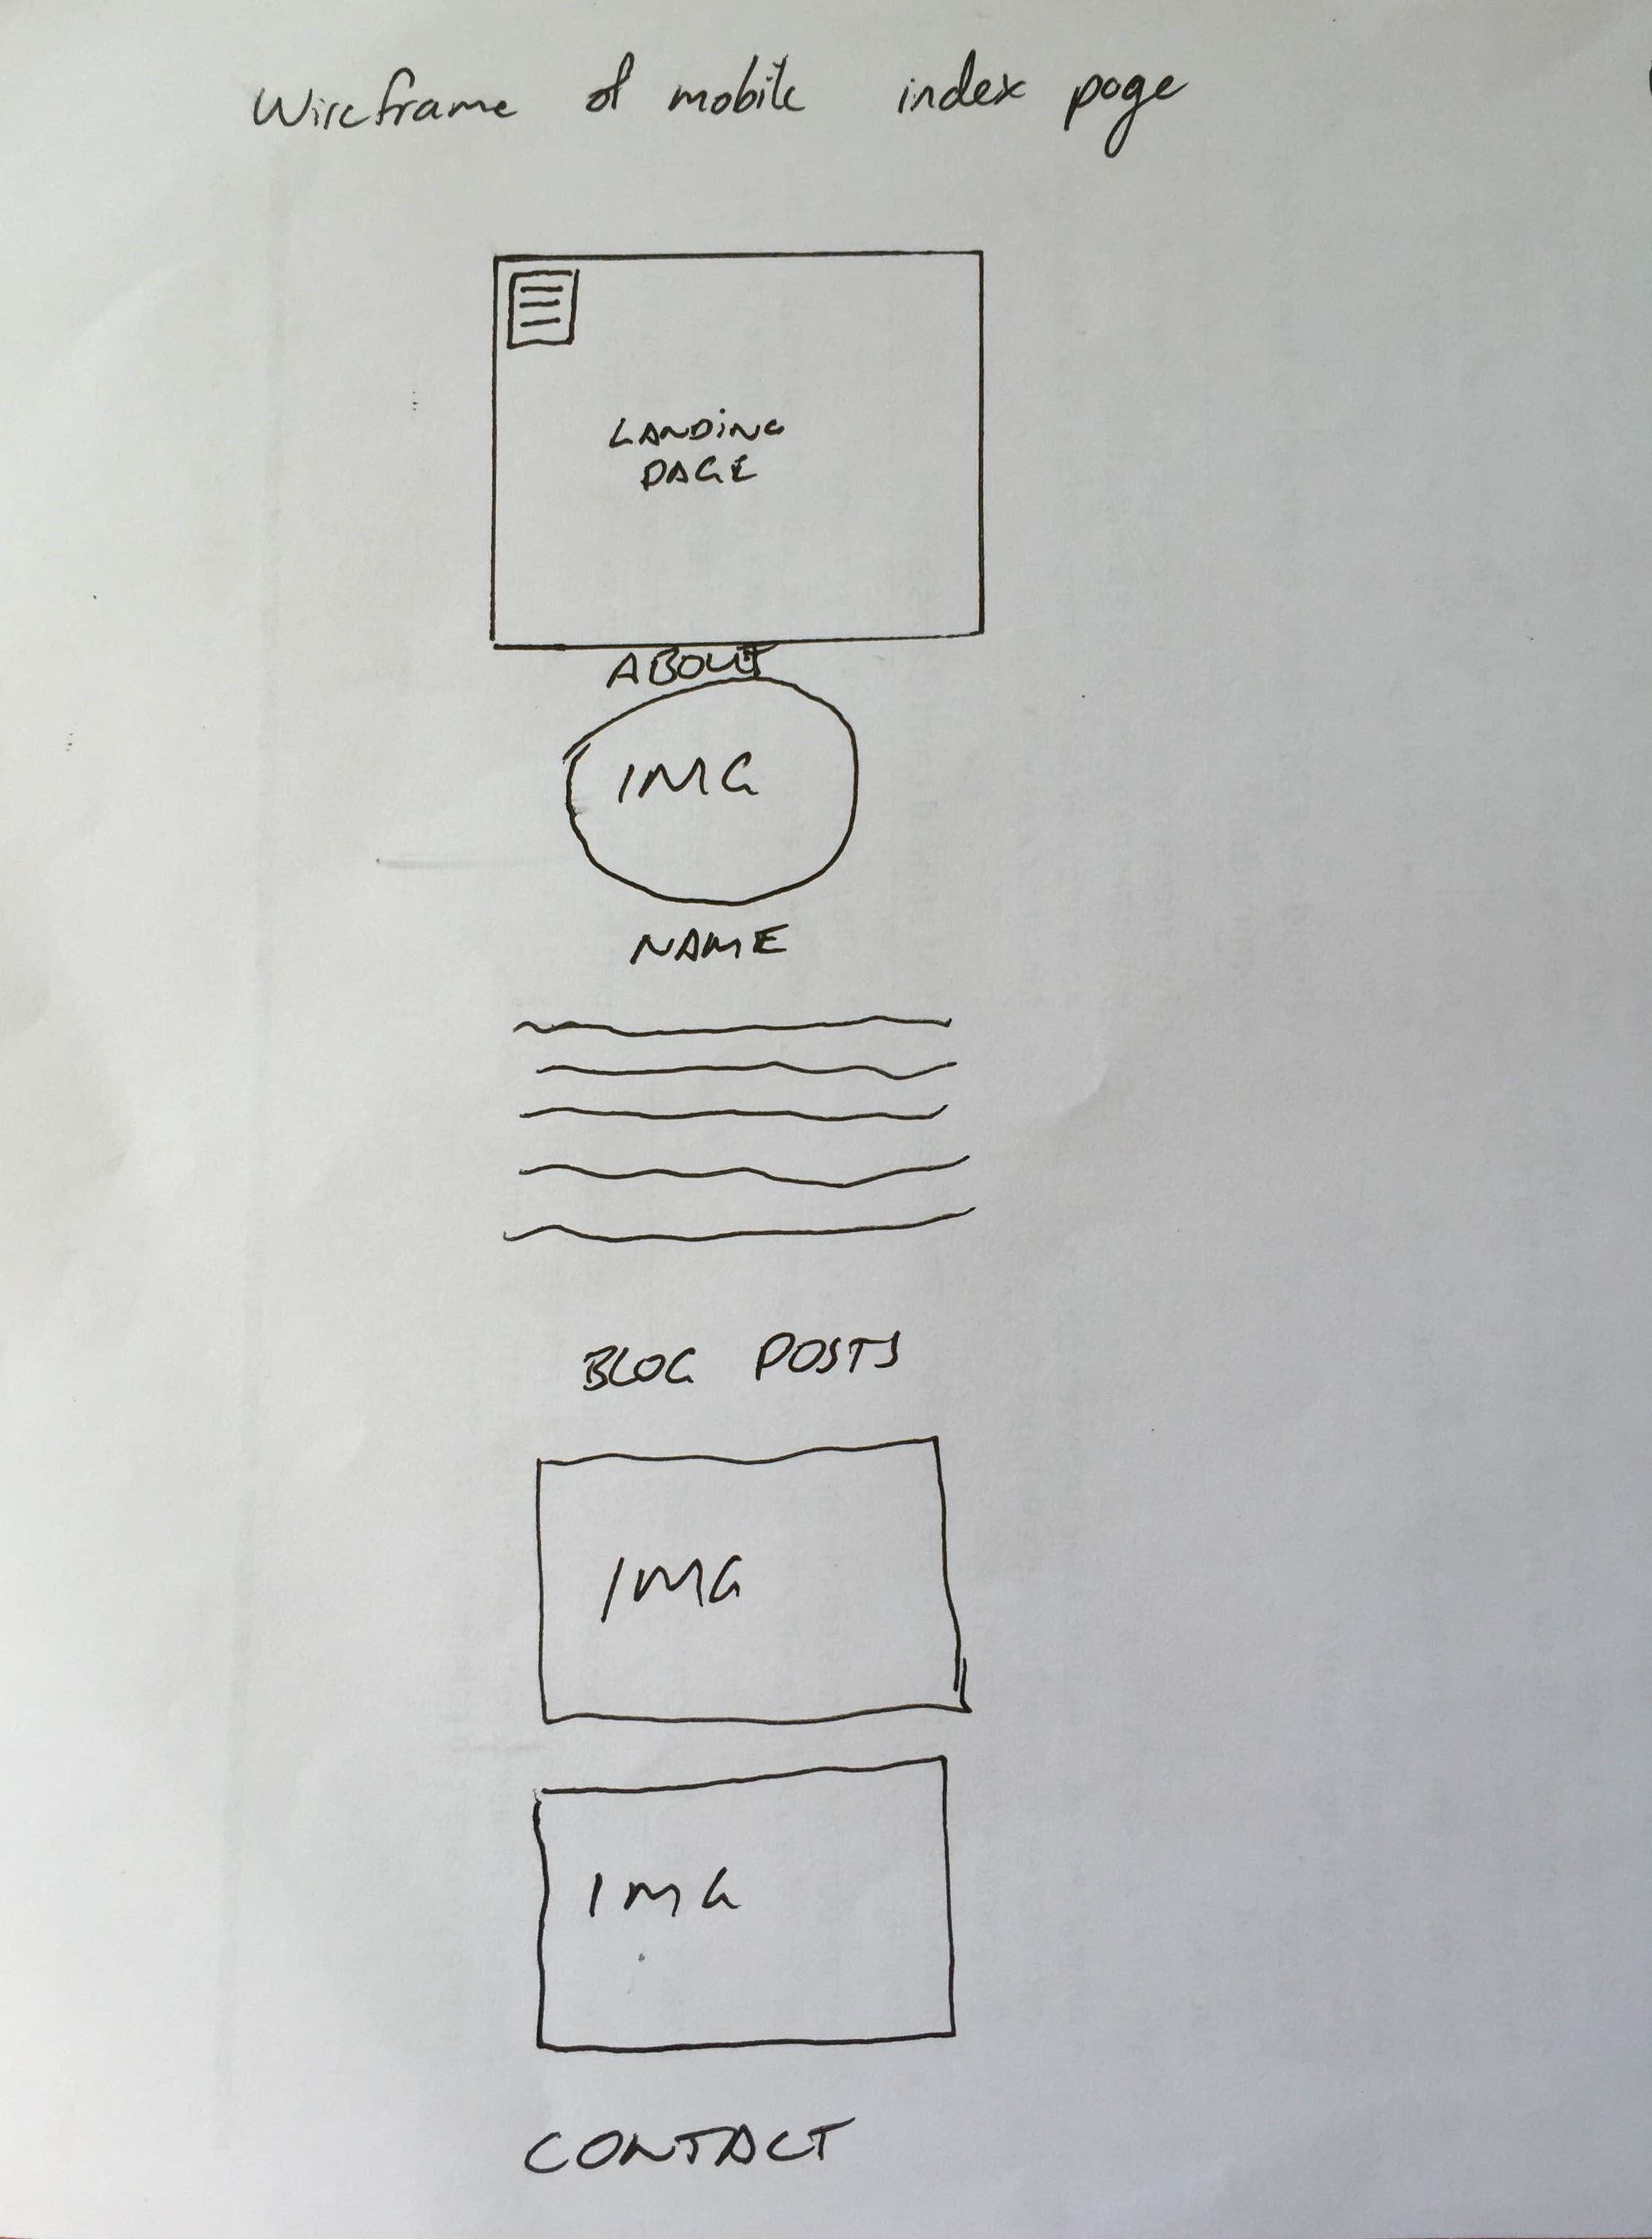 Wireframe of mobile index page
LANDING
PAGE
ABOUT
IMG
NAME
BLOG POSTS
IMG
IMG
CONTACT